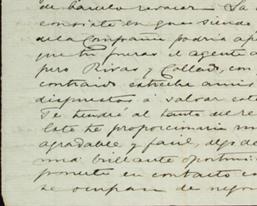 de
consiste en que siendo
de la Compañia podría
que tu fueras el agente
pero Rivas y Collado, con
contraido estrecha amis
dispuestos á salvar este
Te tendré al tanto del re
este te proporcionara
agradable y facil, dejo de
una brillante oportuni
ponerte en contacto co
se ocupan de nego